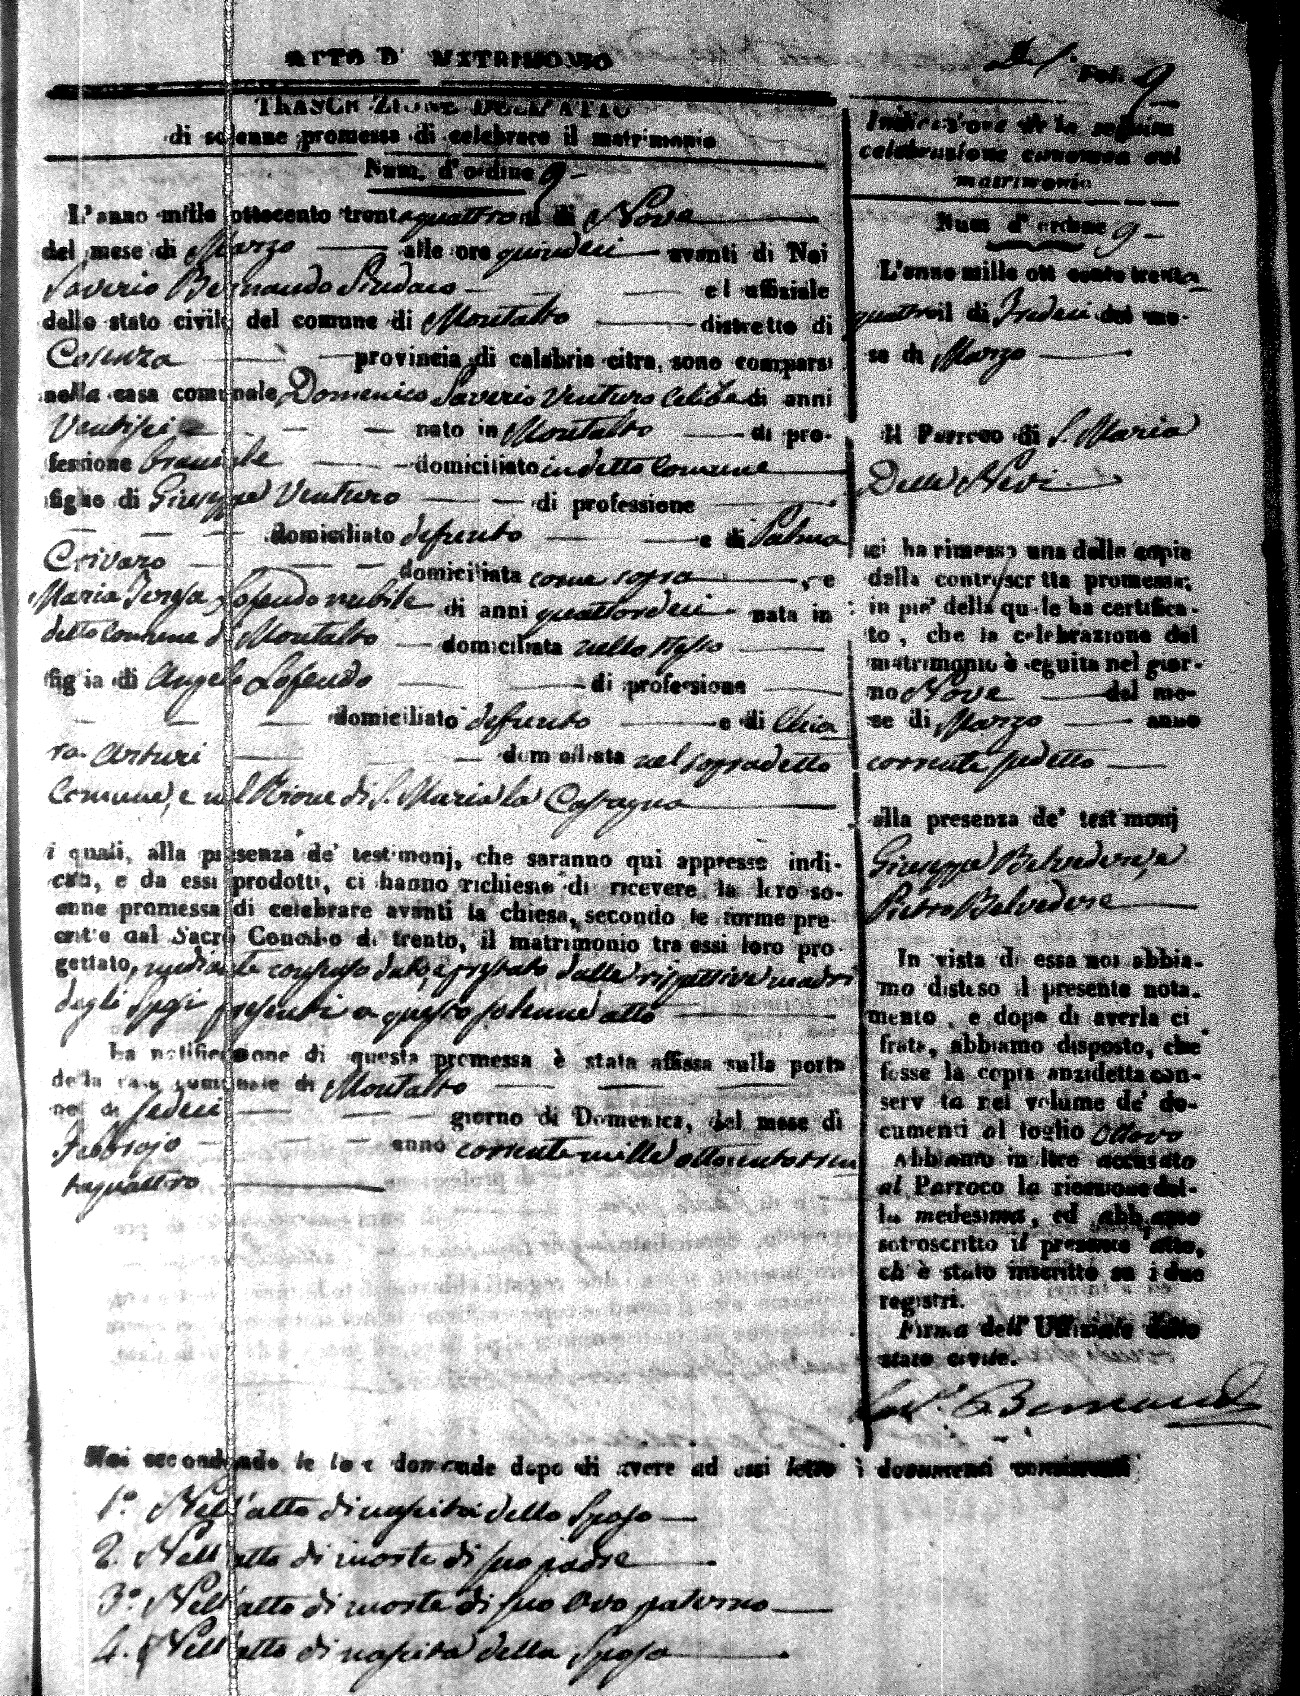 ATTO D' MATRIMONIO
Fol. 9
TRASCRIZIONE DELL'ATTO
di solenne promessa di celebrare il matrimonio
Num. d'ordine 9
L'anno mille ottocento trentaquattro il di Nove
del mese di Marzo alle ore quindeci avanti di Noi
Saverio Bernaudo Sindaco ed uffiziale
dello stato civile del comune di Montalto distretto di
Cosenza provincia di calabria citra, sono comparsi
nella casa comunale Domenico Saverio Venturo Celibe di anni
Ventisei nato in Montalto di pro-
fessione domiciliato in detto Comune
figlio di Giuseppe Venturo di professione
domiciliato defunto e di Palma
Crivaro domiciliata come sopra , e
Maria Teresa Lofendo nubile di anni quattordeci nata in
detto Comune di Montalto domiciliata nello stesso
figlia di Angelo Lofendo di professione
domiciliato defunto e di Chia
ra Arturi domiciliata nel sopradetto
Comune, e nel Rione di S. Maria la Castagna
i quali, alla presenza de' testimonj, che saranno qui appresse indi-
cati, e da essi prodotti, ci hanno richiesto di ricevere la loro so-
enne promessa di celebrare avanti la chiesa, secondo le forme pre-
critte dal Sacro Concilio di trento, il matrimonio tra essi loro pro-
gettato, mediante consenso dato, e prestato dalle rispettive madri
degli Sposi presenti a questo solenne atto
La notificazione di questa promessa è stata affissa sulla porta
della casa comunale di Montalto
nel di sedeci giorno di Domenica, del mese di
Febbrajo anno corrente mille ottocento tren
taquattro
Indicazione de la seguita
celebrazione canonica del
matrimonio
Num d'ordine 9
L'anno mille ott cento trenta
quattro il di Tredeci del me-
se di Marzo
Il Parroco di S. Maria
Della Nevi
ci ha rimesso una delle copie
della controscritta promessa;
in pie' della quale ha certifica-
to, che la celebrazione del
matrimonio è seguita nel gior-
no Nove del me-
se di Marzo anno
corrente sudetto
alla presenza de' testimonj
Giuseppe Belvedere, e
Pietro Belvedere
In vista di essa noi abbia-
mo disteso il presente nota-
mento, e dopo di averla ci
frata, abbiamo disposto, che
fosse la copia anzidetta con-
servata nel volume de' do-
cumenti al foglio Ottavo
Abbiamo inoltre accusato
al Parroco la ricezione del-
la medesima, ed abbiamo
sottoscritto il presente atto,
ch' è stato inscritto su i due
registri.
Firma dell' Uffiziale dello
stato civile.
Sav. Bernaudo
Noi secondando le loro domande dopo di avere ad essi letto i documenti consistenti
1.° Nell'atto di nascita dello Sposo
2. Nell'atto di morte di suo padre
3.° Nell'atto di morte di suo Avo paterno
4. Nell'atto di nascita della Sposa